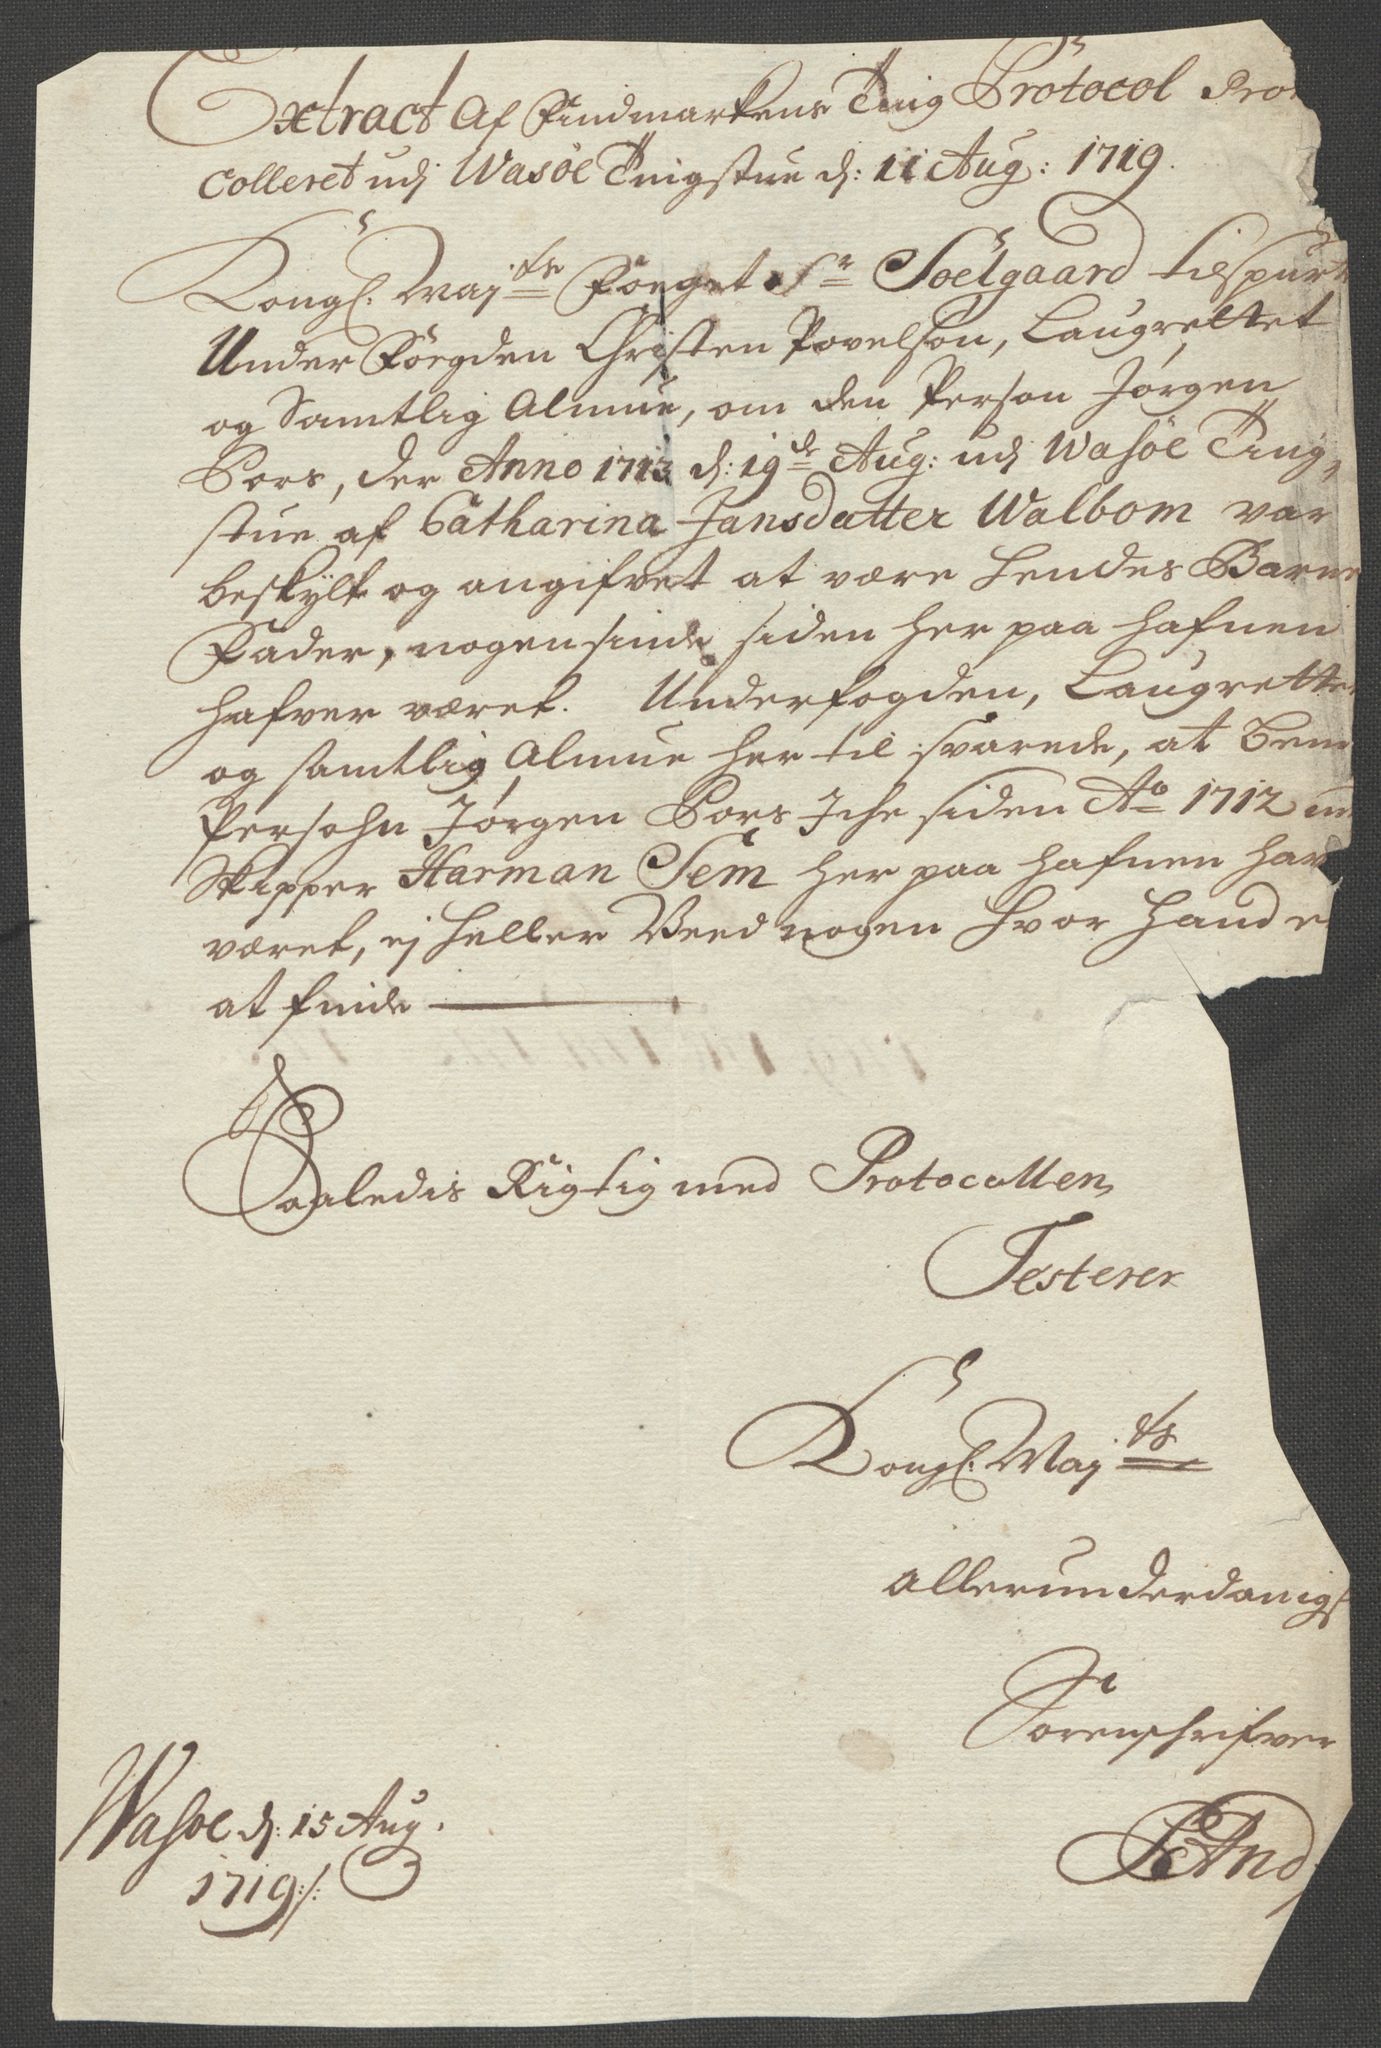 Extract Af Findmarkens Ting Protocol Pro
colleret udj Wasöe Tingstue d: 11 Aug: 1719.
Kongl. Maj:ts Foeget Sr Soelgaard tilspurte
Under Foegden Christen Povelsøn, Laugrettet
og Samtlig Almue, om den Person Jørgen
Pors, der Anno 1713 d: 19de Aug: udj Wasöe Ting-
stue af Catharina Jansdatter Walbom var
beskylt og angifvet at være hendes Barne
Fader, nogensinde siden her paa hafnen
hafver været. Underfogden, Laugrettet
og samtlig Almue her til svarede, at bem
Persohn Jørgen Pors Iche siden Ao 1712 m
Skipper Harman Sem her paa hafnen har
været, ej heller Veed nogen hvor hand e
at finde
Saaledis Rigtig med Protocollen,
Testerer
Kongl. Maj:ts
allerunderdanigs
Sorenschrifver
And
Wasöe d: 15 Aug.
1719:/: